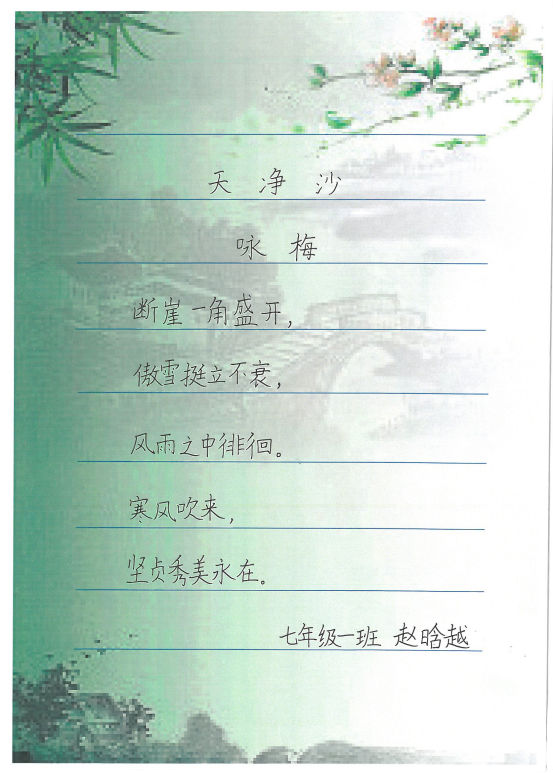 天净沙
咏梅
断崖一角盛开，
傲雪挺立不衰，
风雨之中徘徊。
寒风吹来，
坚贞秀美永在。
七年级一班 赵晗越